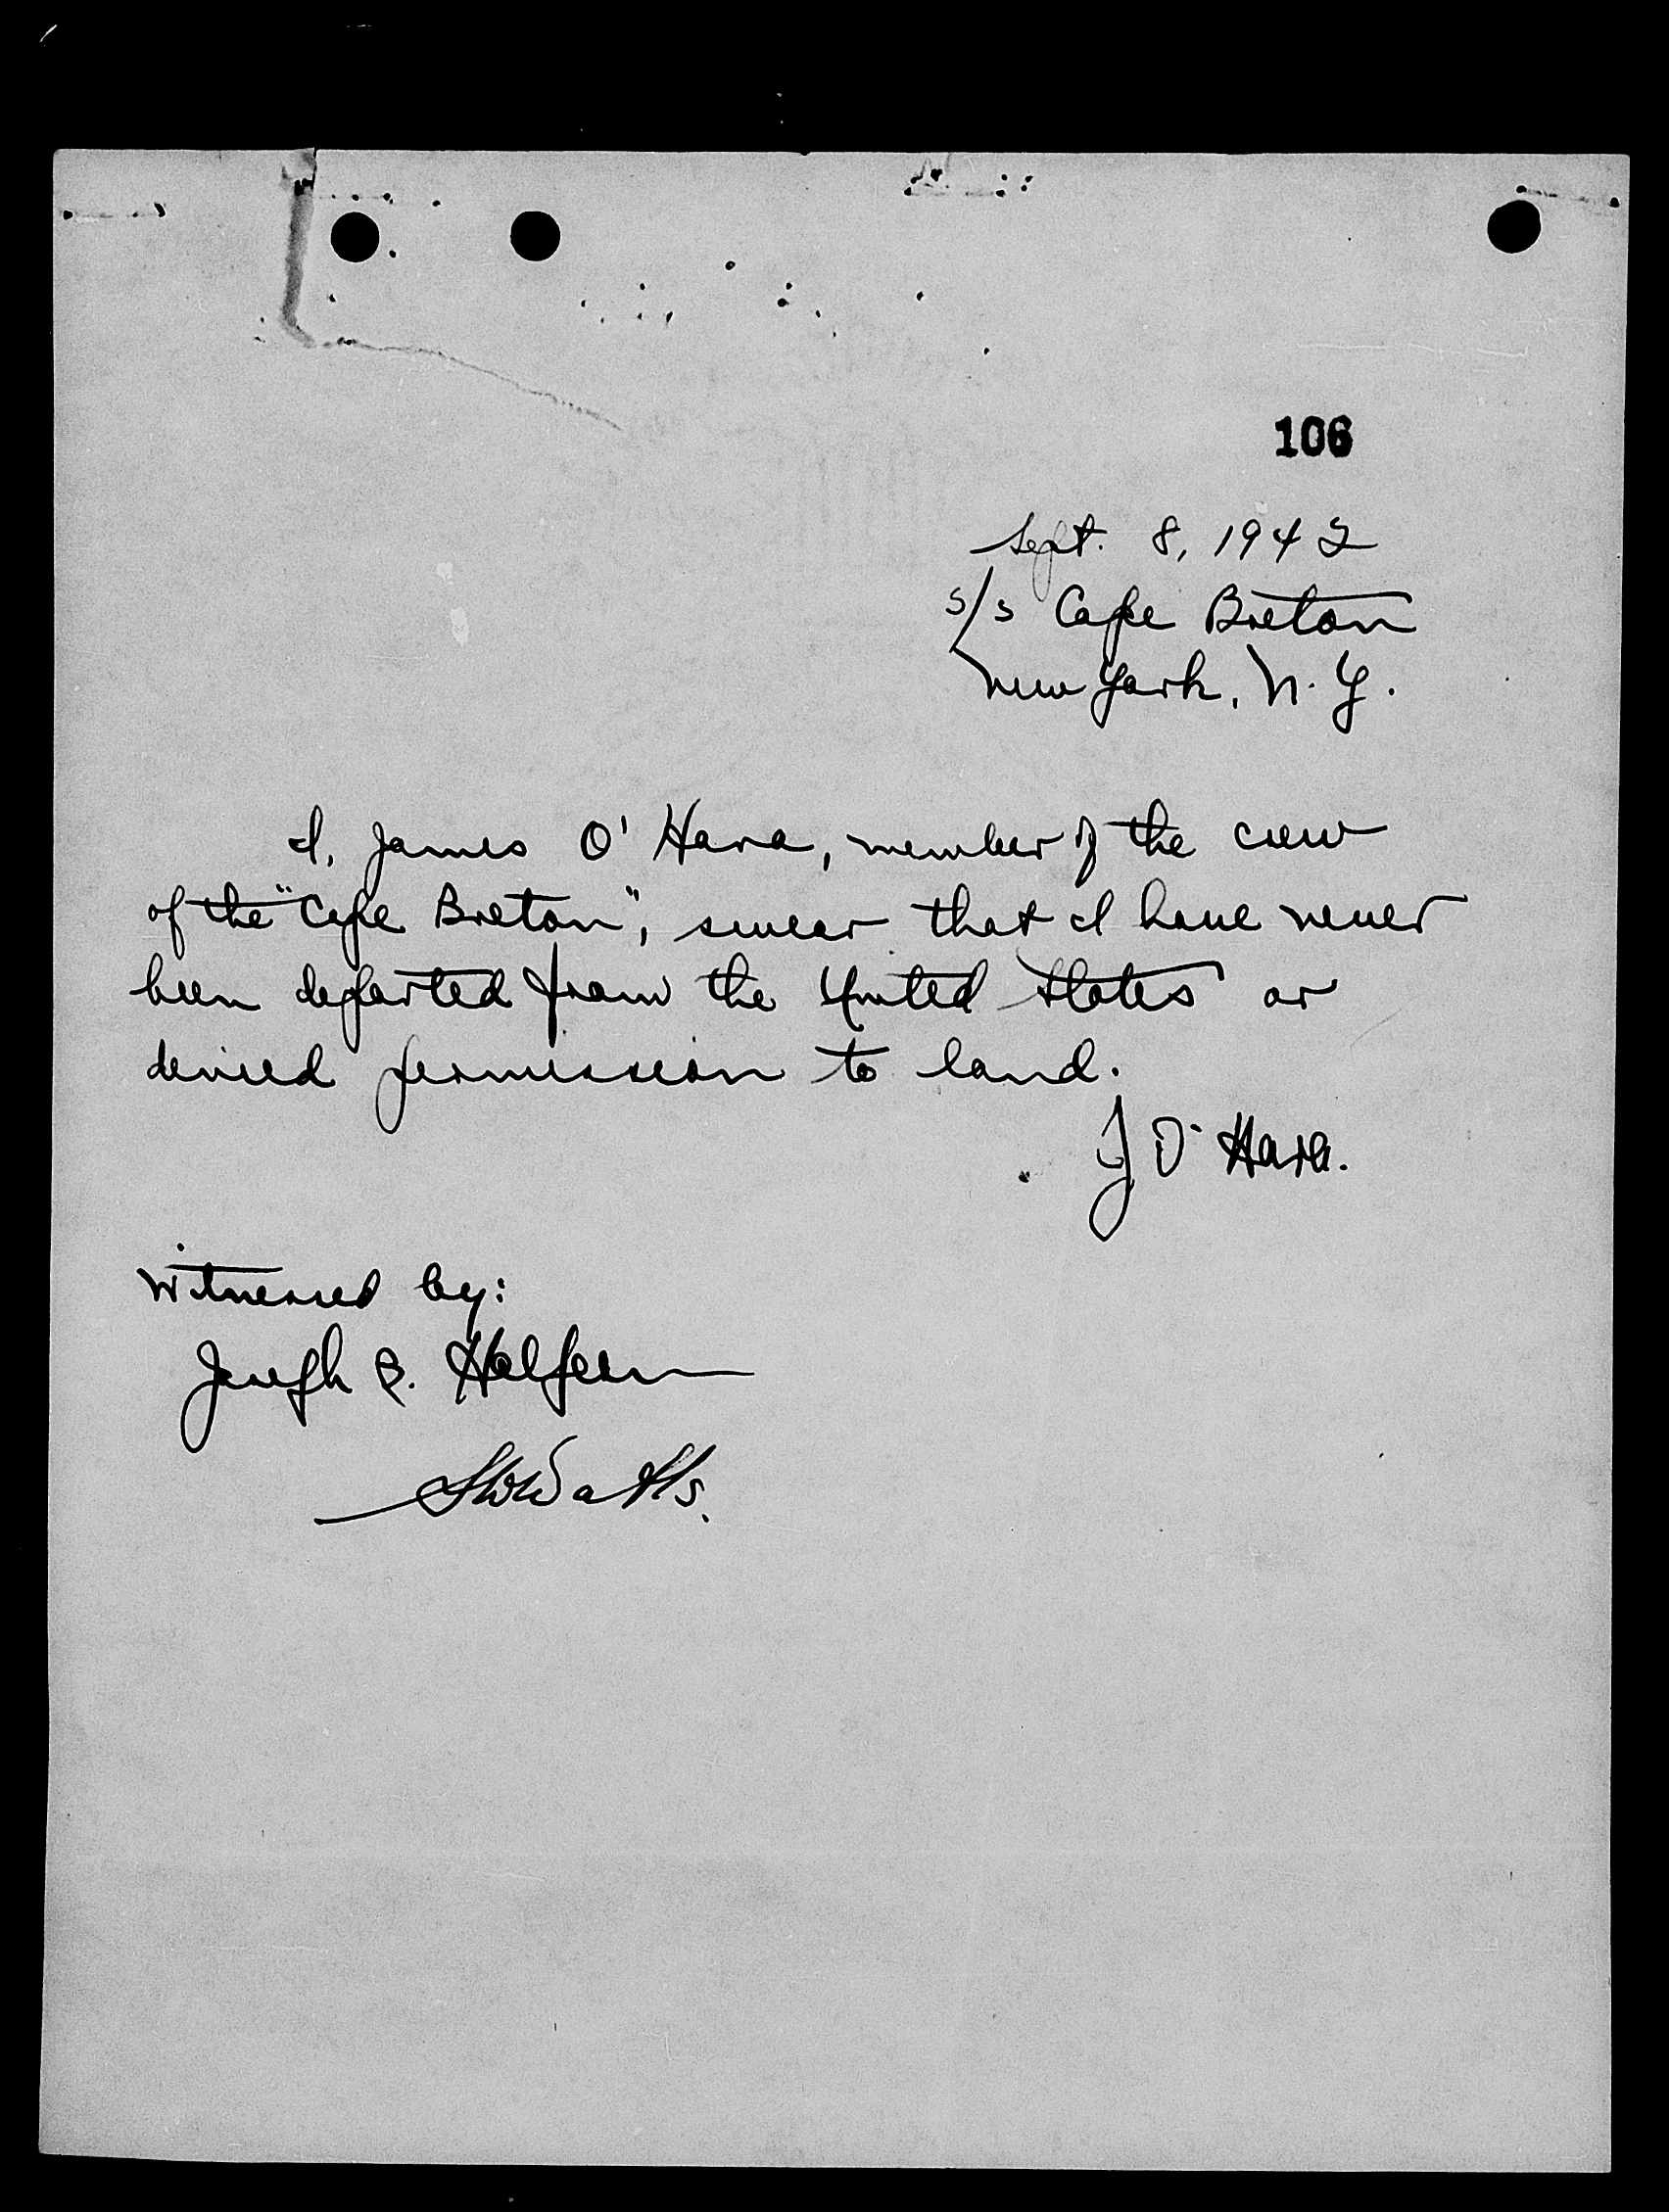 106
Sept. 8, 1942
s/s Cape Breton
New York, N. Y.
I, James O'Hara, member of the crew
of the "Cape Breton", swear that I have never
been deported from the United States or
denied permission to land.
J O'Hara.
Witnessed by:
Joseph B. Halpern
Watts.